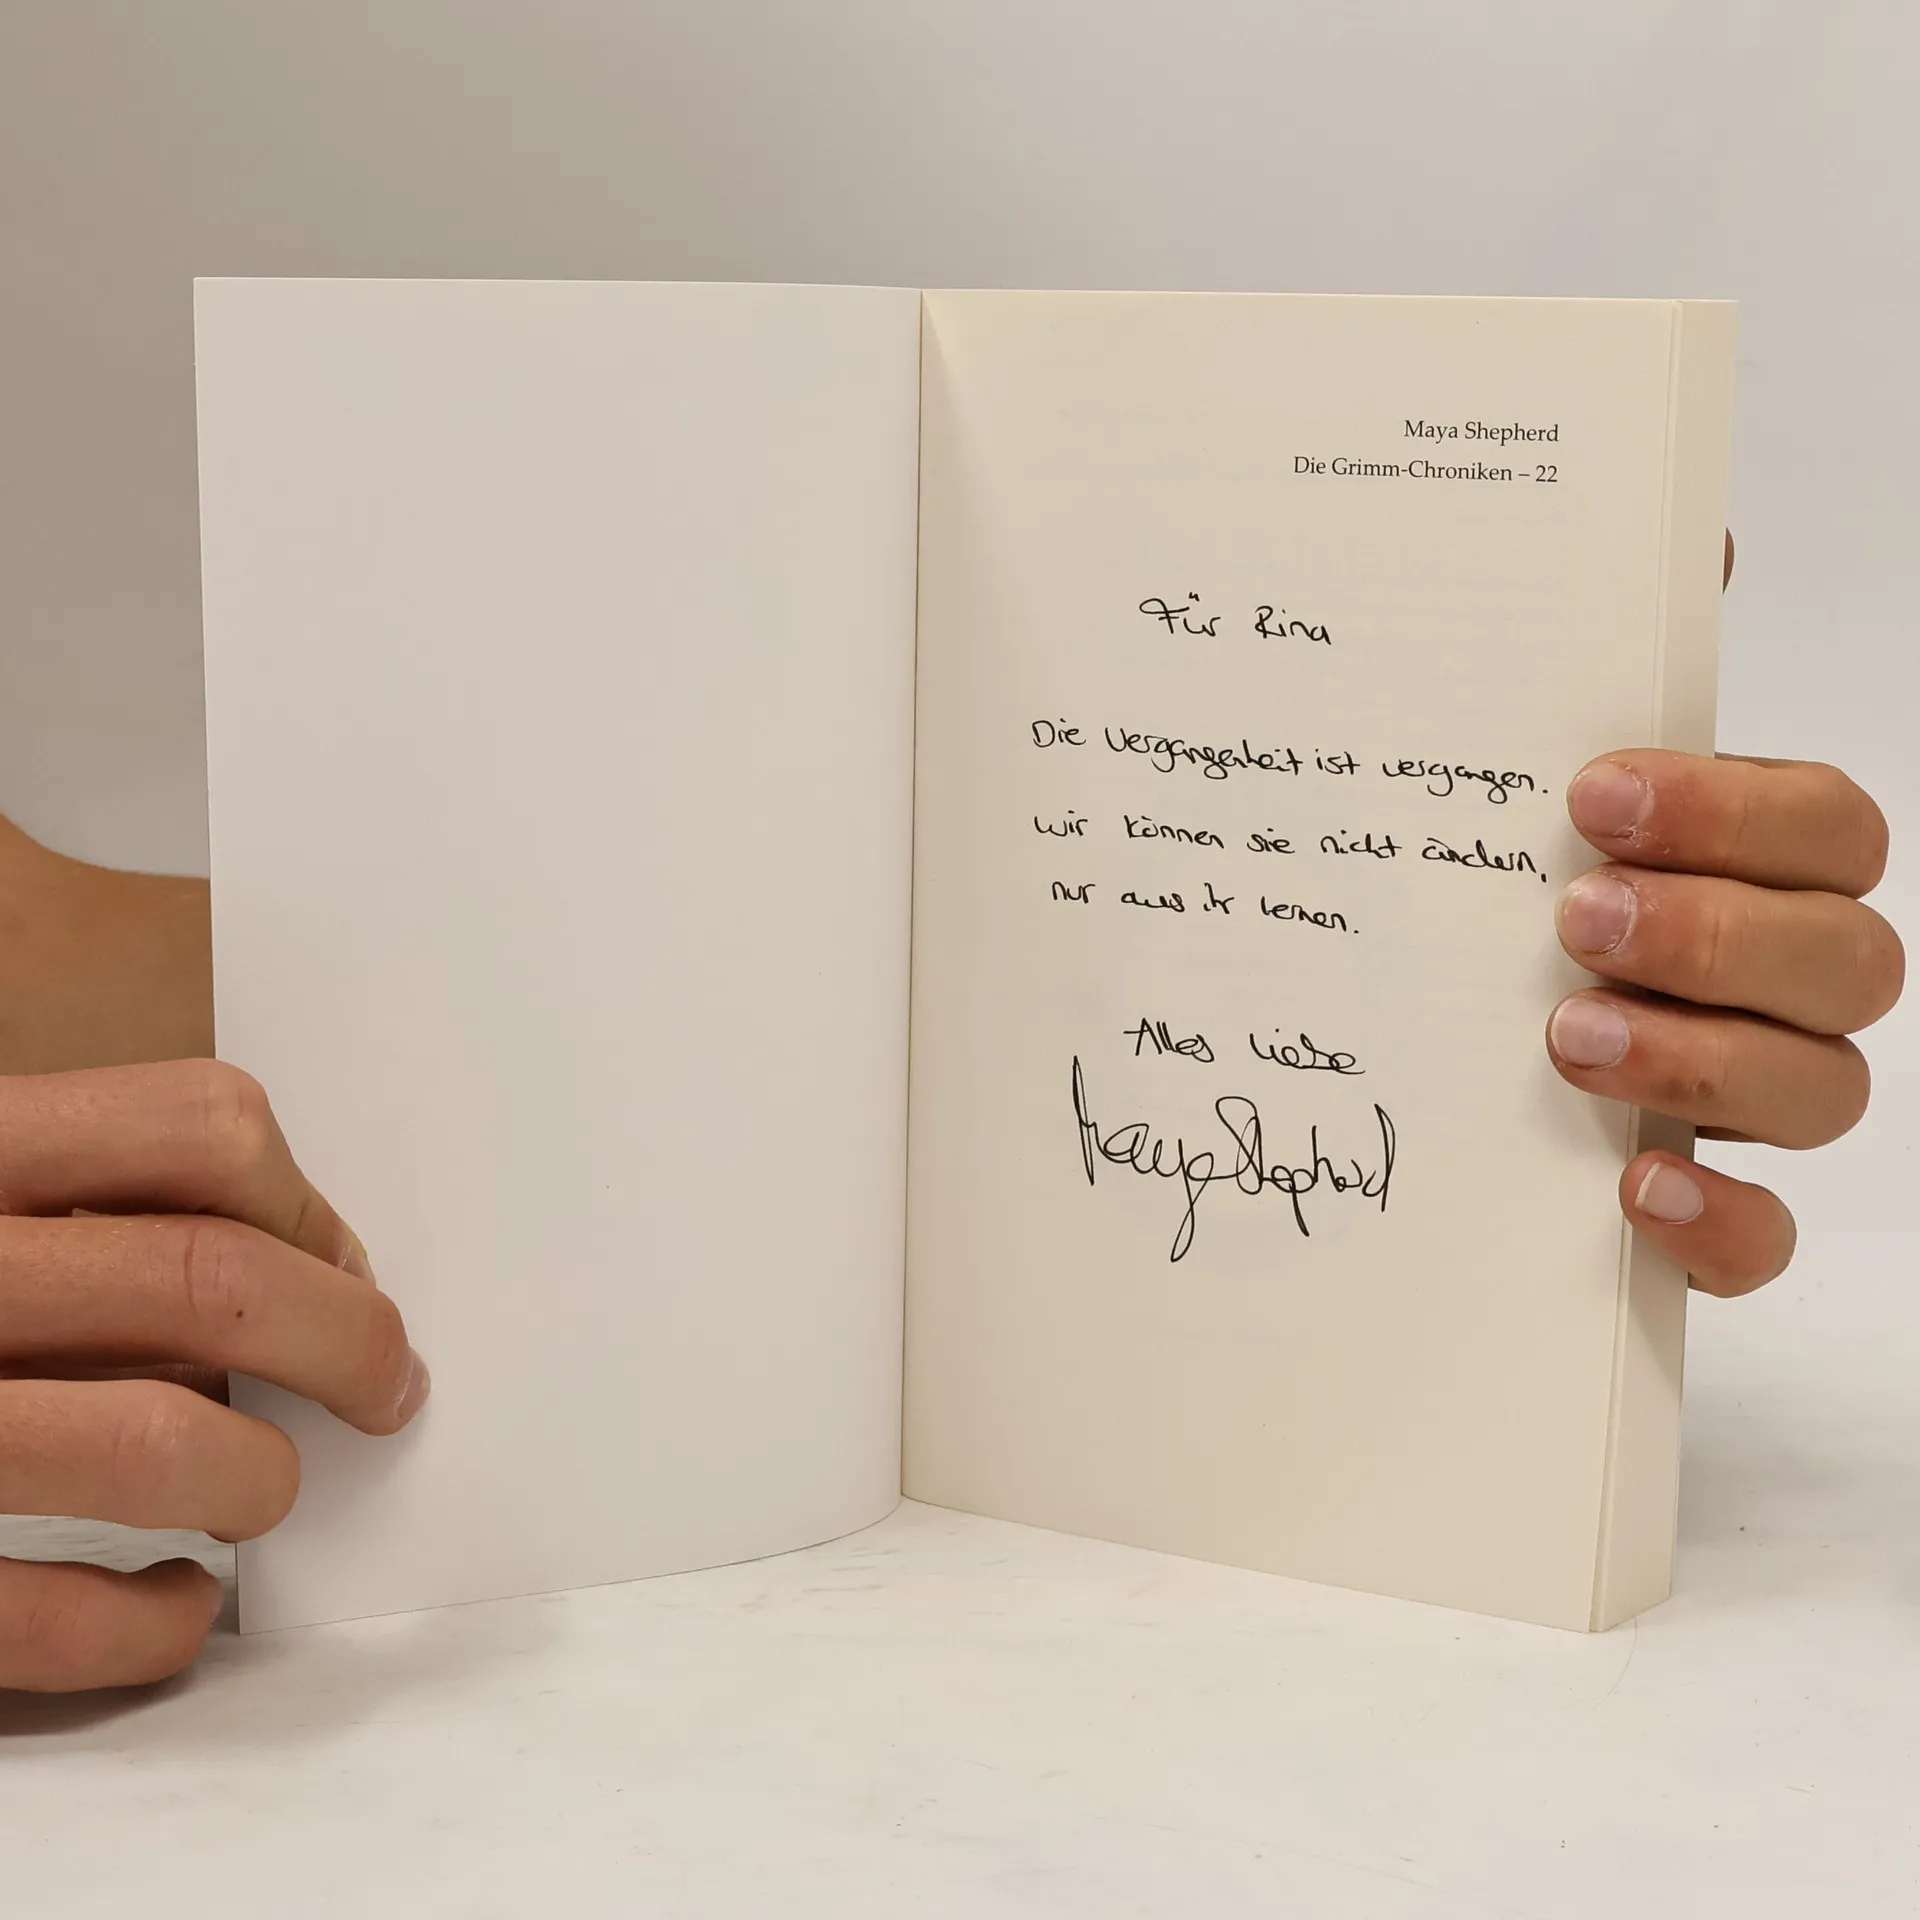 Maya Shepherd
Die Grimm-Chroniken – 22
Für Rina
Die Vergangenheit ist vergangen.
Wir können sie nicht ändern,
nur aus ihr lernen.
Alles Liebe
Maya Shepherd